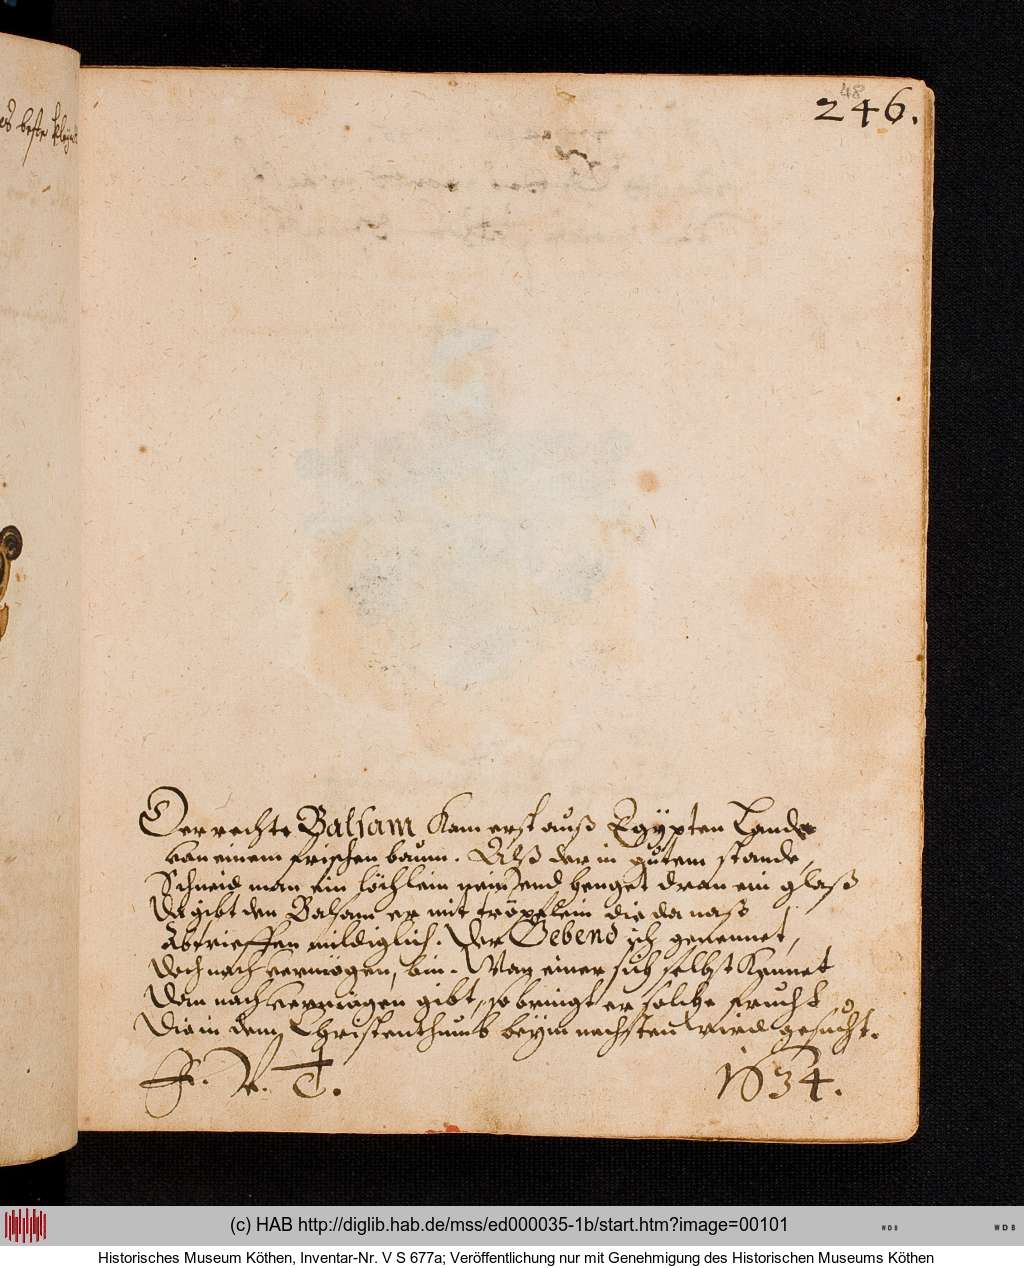 es beste
48
246.
Der rechte Balsam kam erst auß Egypten Lande
von einem frischen baum. Alß der in gutem stande,
Schneid man ein löchlein nein, und henget dran ein glaß
Da gibt den Balsam er mit tröpflein die da naß
Abtrieffen mildiglich. Der Gebend ich genennet,
doch nach vermögen, bin. Wan einer sich selbst kennet
Dan nach vermögen gibt, so bringt er solche frucht
Die in dem Christenthumb beym nechsten wird gesucht.
F. V. T. 1634.
(c) HAB http://diglib.hab.de/mss/ed000035-1b/start.htm?image=00101
WDB
WDB
Historisches Museum Köthen, Inventar-Nr. V S 677a; Veröffentlichung nur mit Genehmigung des Historischen Museums Köthen